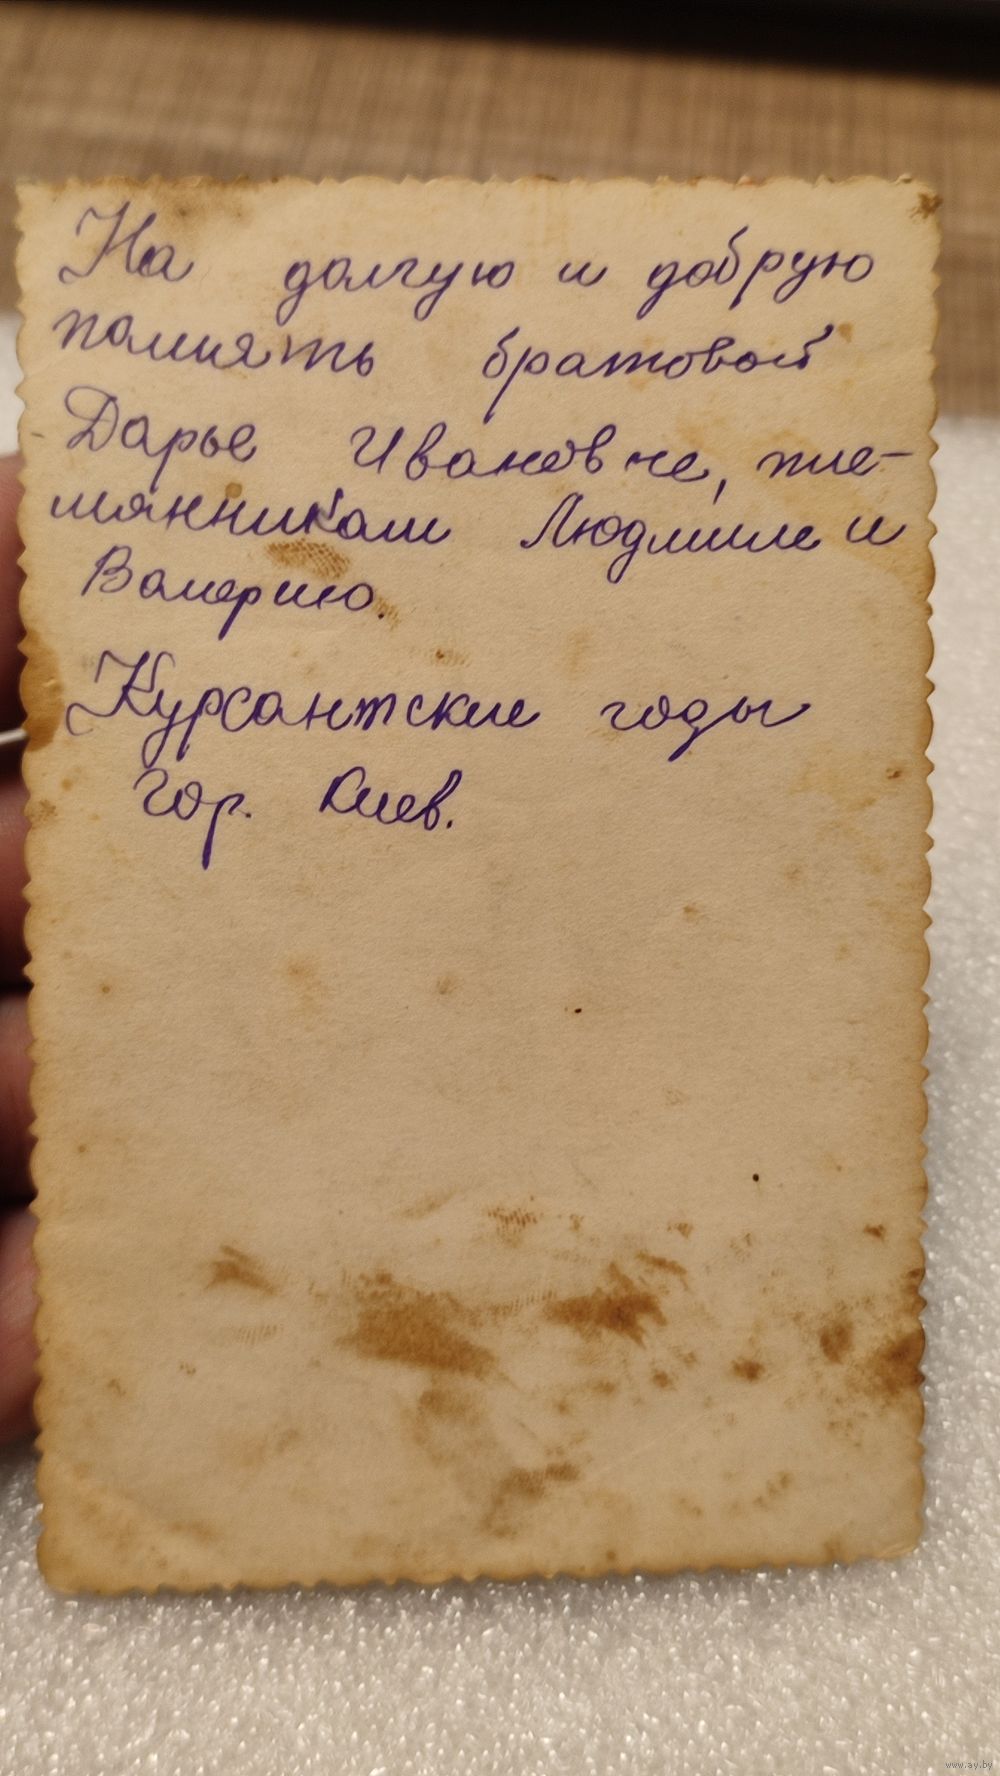 На долгую и добрую
память братовой
Дарье Ивановне, пле-
мянникам Людмиле и
Валерию.
Курсантские годы
гор. Киев.
www.ay.by